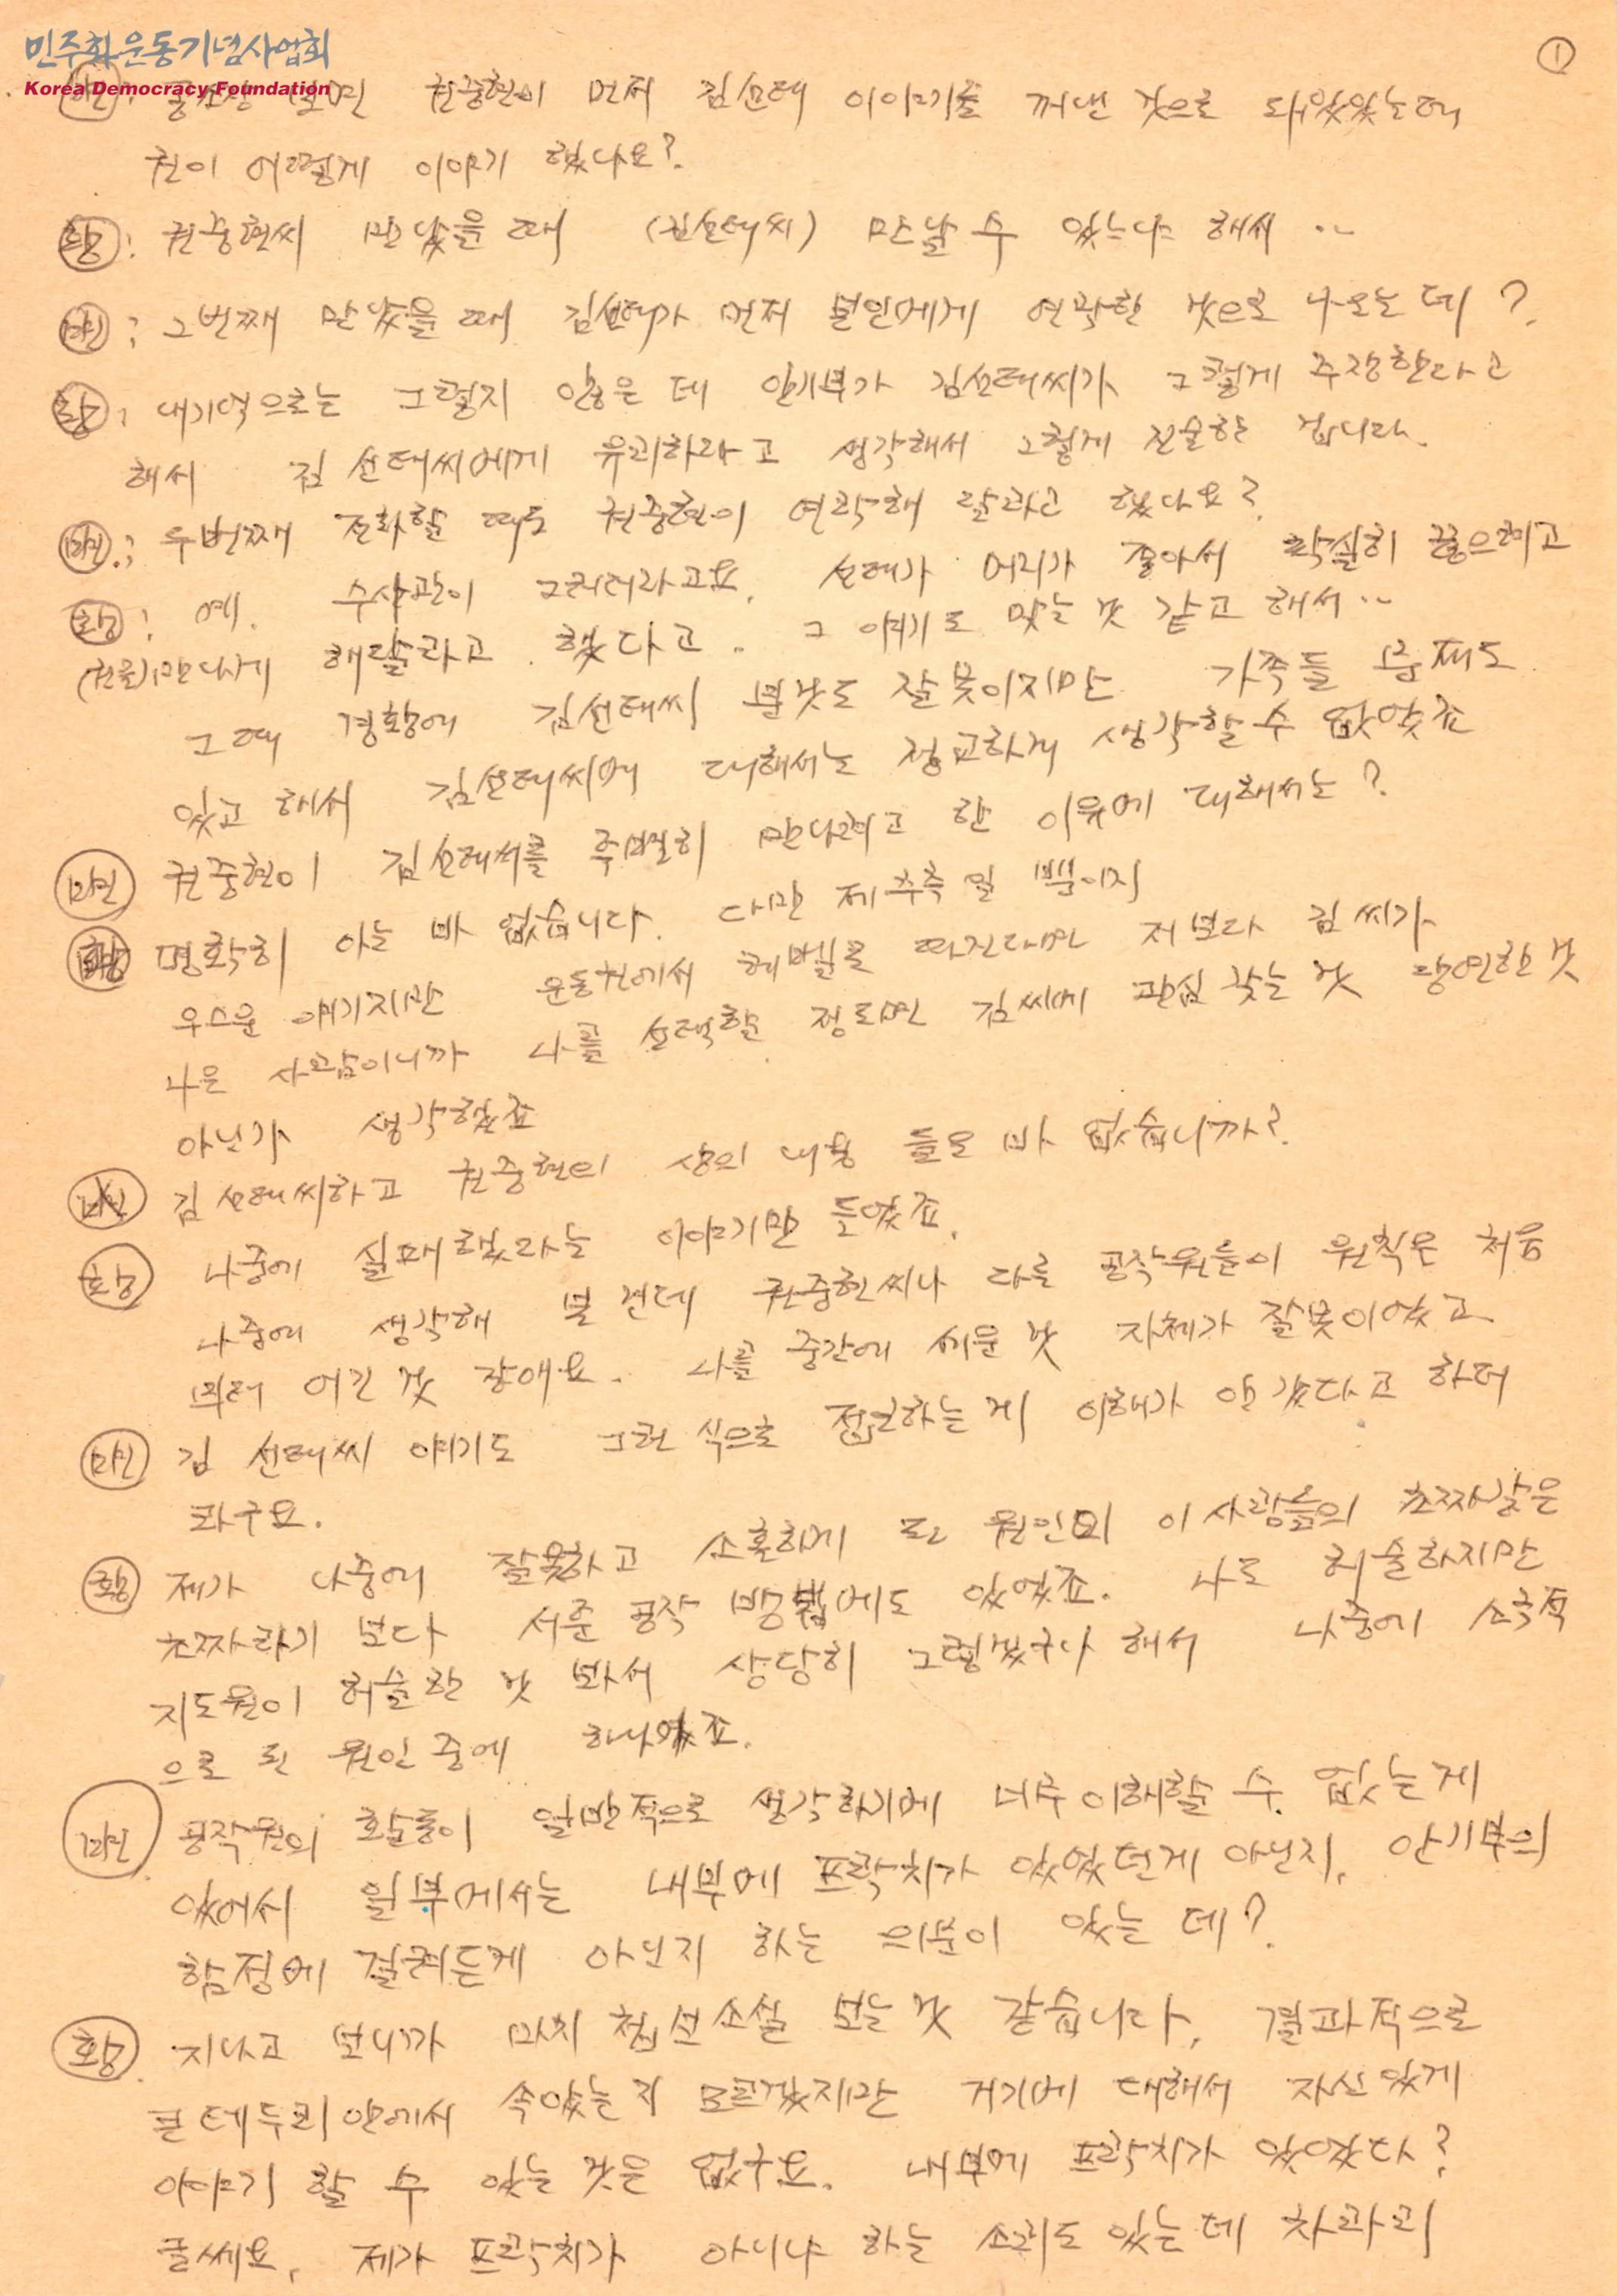 민주화운동기념사업회
①
Korea Democracy Foundation
보면 권중현이 먼저 김선태 이야기를 꺼낸 것으로 되있었는데
권이 어떻게 이야기 했나요?
황: 권중현씨 만났을 때 (김선태씨) 만날 수 있느냐 해서 ..
민: 그번째 만났을 때 김선태가 먼저 본인에게 연락한 것으로 나오는데?
황: 내기억으로는 그렇지 않은데 안기부가 김선태씨가 그렇게 주장한다고
해서 김선태씨에게 유리하라고 생각해서 그렇게 진술한 겁니다.
민: 두번째 전화할 때도 권중현이 연락해 달라고 했나요?
황: 예. 수사관이 그러더라고요. 선태가 머리가 좋아서 확실히 끊으려고
(권을) 만나게 해달라고 했다고. 그 얘기도 맞는 것 같고 해서..
그때 경황에 김선태씨 분것도 잘못이지만 가족들 문제도
있고 해서 김선태씨에 대해서는 정교하게 생각할 수 없었죠
민 권중현이 김선태씨를 만나려고 한 이유에 대해서는?
황 명확히 아는 바 없습니다. 다만 제 추측일 뿐이지
우스운 얘기지만 운동권에서 레벨로 따진다면 저보다 김씨가
나은 사람이니까 나를 선택할 정도면 김씨에 관심 갖는 것 당연한 것
아닌가 생각했죠
민 김선태씨하고 권중현의 상의 내용 들은 바 없습니까?
황 나중에 실패했다는 이야기만 들었죠.
나중에 생각해 볼 건데 권중현씨나 다른 공작원들이 원칙은 처음
부터 어긴 것 같애요. 나를 중간에 세운 것 자체가 잘못이었고
민 김선태씨 얘기도 그런 식으로 접근하는게 이해가 안갔다고 하더
라구요.
황 제가 나중에 잘못하고 소홀하게 된 원인의 이 사람들의 초짜같은
초짜라기 보다 서툰 공작 방법에도 있었죠. 나도 허술하지만
지도원이 허술한 것 봐서 상당히 그렇겠구나 해서 나중에 소극적
으로 된 원인 중에 하나였죠.
민 공작원의 활동이 일반적으로 생각하기에 너무 이해할 수 없는게
있어서 일부에서는 내부에 프락치가 있었던게 아닌지, 안기부의
함정에 걸려든게 아닌지 하는 의문이 있는데?
황 지나고 보니까 마치 첩보소설 보는 것 같습니다. 결과적으로
큰 테두리 안에서 속았는지 모르겠지만 거기에 대해서 자신있게
이야기 할 수 있는 것은 없구요. 내부에 프락치가 있었다?
글쎄요, 제가 프락치가 아니냐 하는 소리도 있는데 차라리